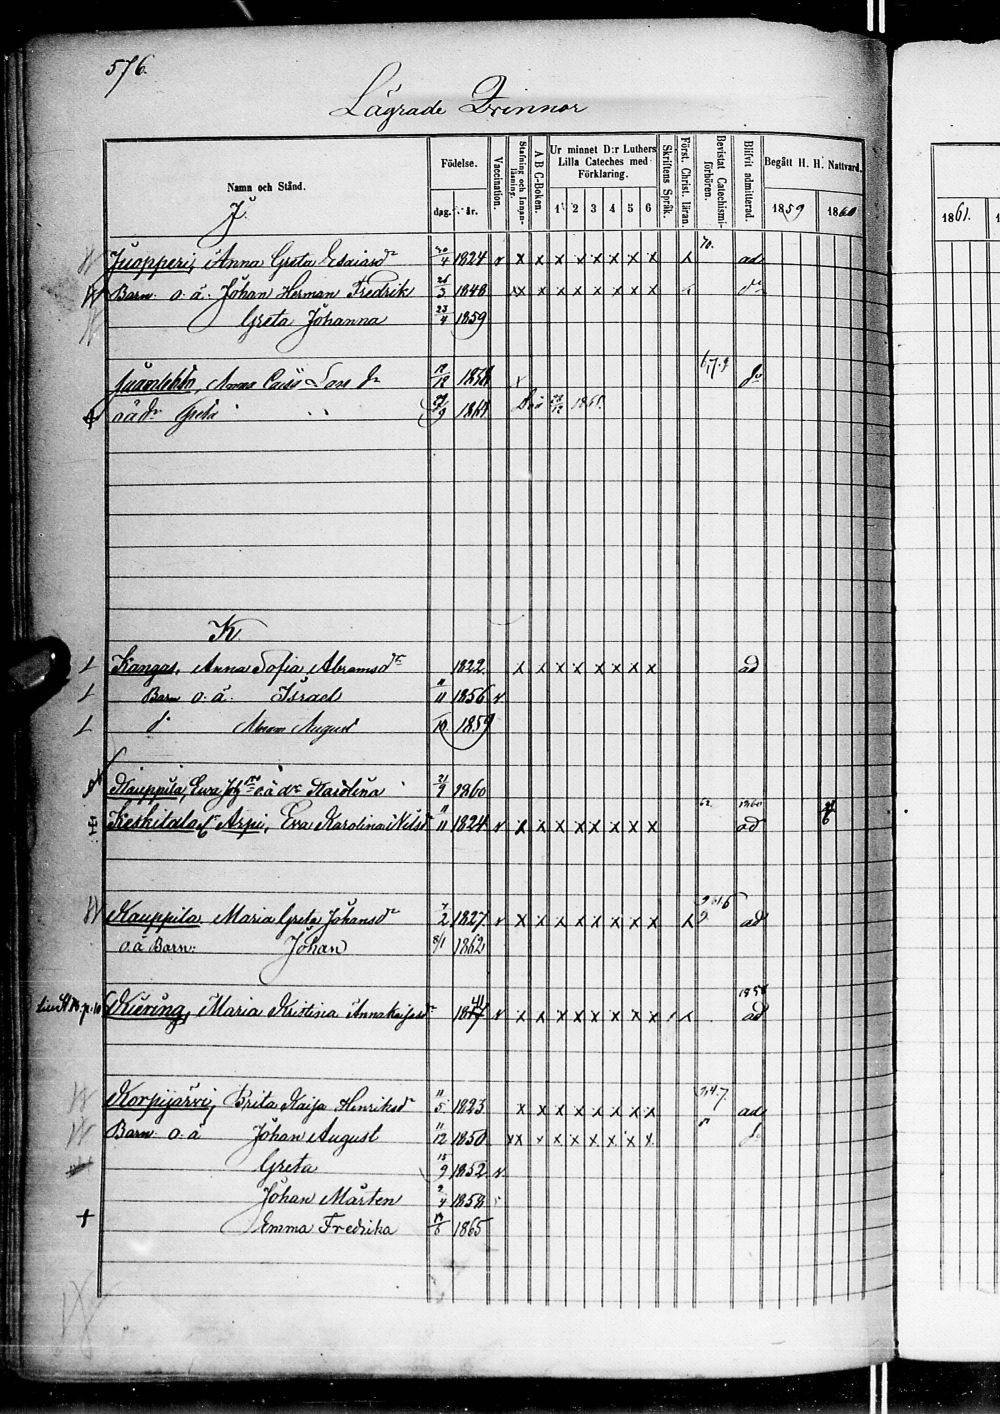 576.
Lägrade Qvinnor
Namn och Stånd.
Födelse.
dag. år.
Vaccination.
Stafning och Innan-läsning.
A B C-Boken.
Ur minnet D:r Luthers Lilla Cateches med Förklaring.
1 2 3 4 5 6
Skriftens Språk.
Först. Christ. läran.
Bevistat Catechismi-förhören.
Blifvit admitterad.
Begått H. H. Nattvard.
1859 1860
1861.
J.
Juopperi, Anna Greta Esaiasdr 20/4 1824 v x x x x x x x x x 70. ad
Barn o. ä. Johan Herman Fredrik 26/3 1848 xx x x x x x x x do
Greta Johanna 23/4 1859
Anna Caisa Lars dr 12/12 1838 x do
o ä dr Greta 1861 Död 1861.
K
Kangas, Anna Sofia Abramsdr 1822 x x x x x x x x ad
Barn o. ä. Israel 11/11 1856 v
d:o Abram August /10 1859
Kauppila, Eva o ä dr Karolina 21/9 1860
Keskitalo l. Arpi, Eva Karolina Nilsd 11/11 1824 v x x x x x x x x 62. 1860 ad
Kauppila Maria Greta Johansdr 7/2 1827 v x x x x x x x x x ad
o. ä Barn: Johan 8/1 1862
Kiering, Maria Kristina Annakajsadr 1847 41 v x x x x x x x x x 1858 ad
Korpijärvi, Brita Kajsa Henriksd 11/5 1823 x x x x x x x x 347. ad
Barn o. ä Johan August 11/12 1850 xx x x x x x x x d:o
Greta 15/9 1852 v
Johan Mårten 2/4 1858
Emma Fredrika 1865